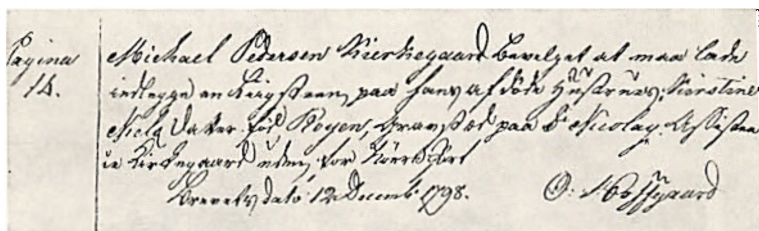 Pagina
14.
Michael Pedersen Kierkegaard Bevelget at maa lade
indlegge en Liigsteen paa hans afdöde Hustrues, Kirstine
Niels Datter föd Royen, Gravsted paa St Nicolay Assisten
ce Kirkegaard uden for Nörreport
Brevets dato 12 Decemb 1798.